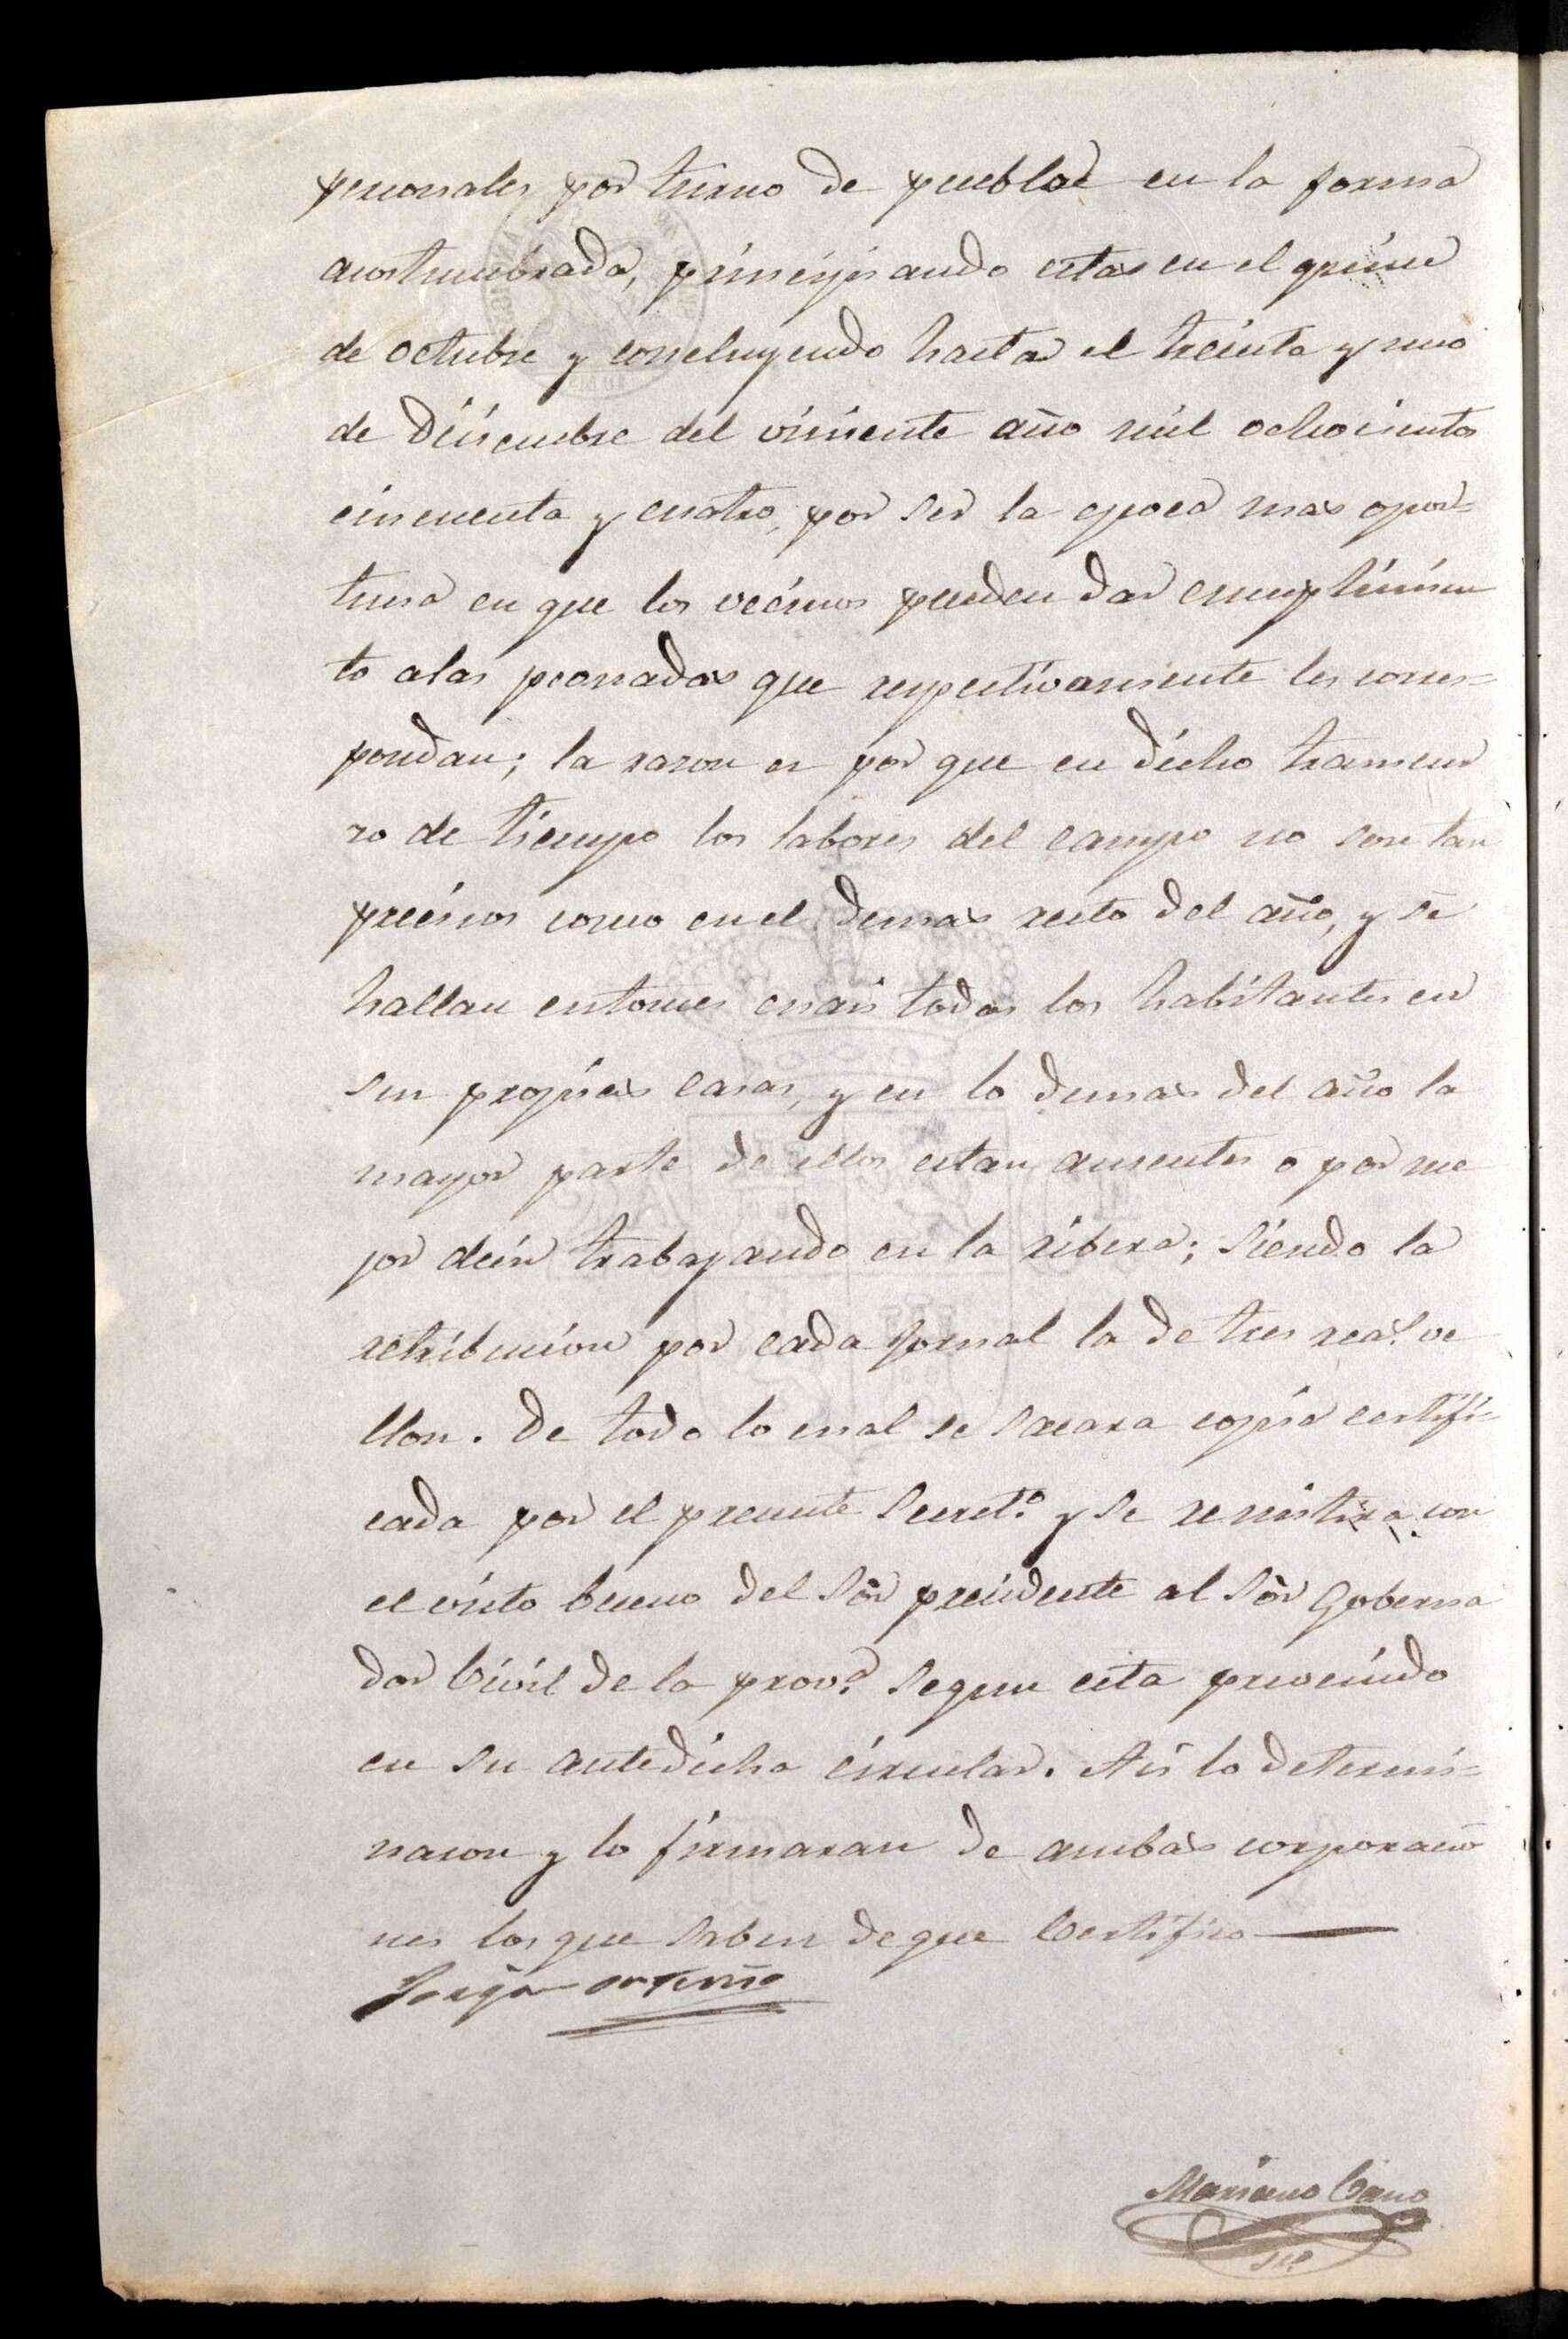 personales por turno de pueblo en la forma
acostumbrada, principiando estas en el prime
de octubre y concluyendo hasta el treinta y uno
de Diciembre del viniente año mil ochocientos
cincuenta y cuatro, por ser la epoca mas opor=
tuna en que los vecinos pueden dar cumplimien
to alas peonadas que respectivamente les corres=
pondan; la razon es por que en dicho transcur
so de tiempo los labores del campo no son tan
precisos como en el demas resto del año, y se
hallan entonces cuasi todos los habitantes en
sus propias casas, y en lo demas del año la
mayor parte de ellos estan ausentes o por me
jor decir trabajando en la ribera; siendo la
retribucion por cada Jornal la de tres rea.s ve
llon. De todo lo cual se sacara copia certifi=
cada por el presente Secret.o y se remitira con
el visto bueno del Sõr presidente al Sõr Goberna
dor Civil de la prov.a segun esta prevenido
en su antedicha circular. Asi lo determi=
naron y lo firmaran de ambas corporacio
nes los que saben de que Certifico
Mariano Cano
Sri.o